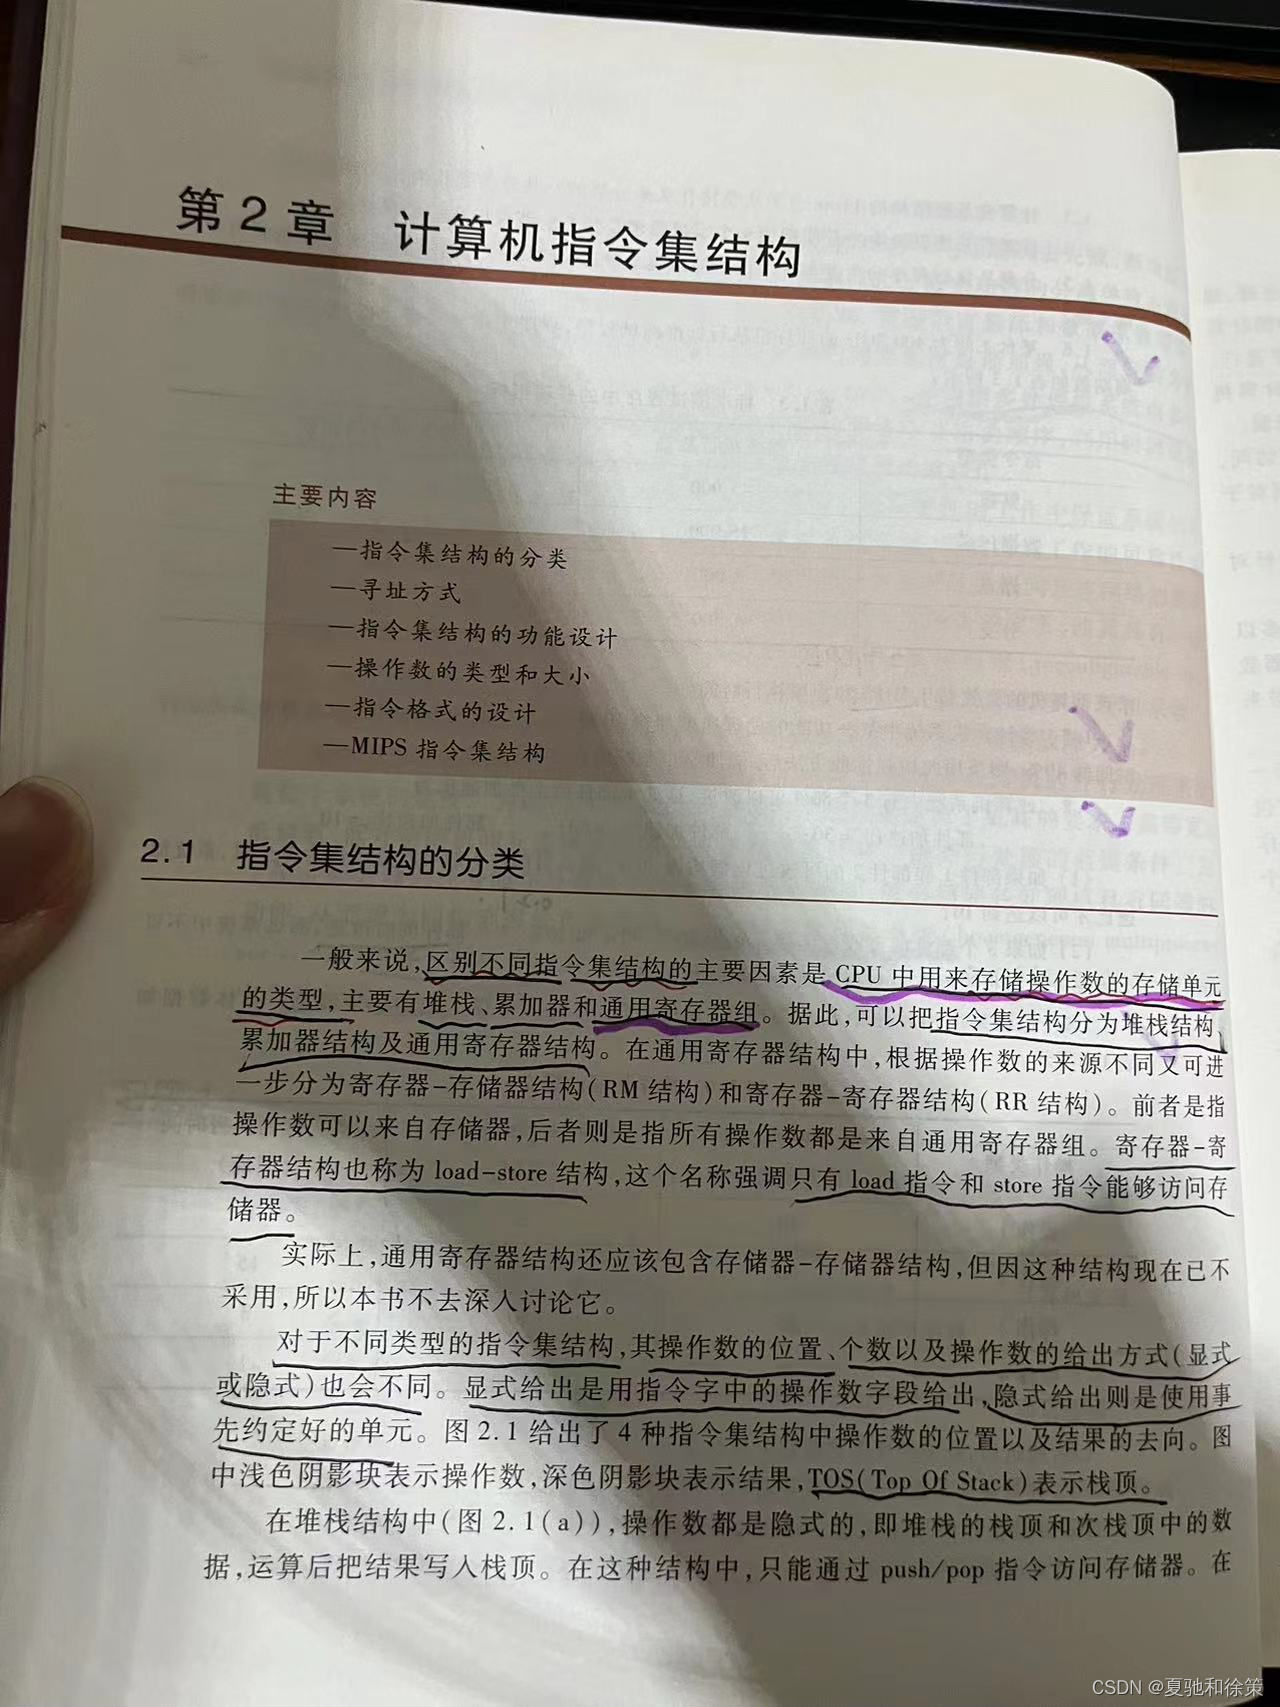 第2章 计算机指令集结构
主要内容
—指令集结构的分类
—寻址方式
—指令集结构的功能设计
—操作数的类型和大小
—指令格式的设计
—MIPS 指令集结构
2.1 指令集结构的分类
一般来说,区别不同指令集结构的主要因素是 CPU 中用来存储操作数的存储单元
的类型,主要有堆栈、累加器和通用寄存器组。据此,可以把指令集结构分为堆栈结构、
累加器结构及通用寄存器结构。在通用寄存器结构中,根据操作数的来源不同又可进
一步分为寄存器-存储器结构(RM 结构)和寄存器-寄存器结构(RR 结构)。前者是指
操作数可以来自存储器,后者则是指所有操作数都是来自通用寄存器组。寄存器-寄
存器结构也称为 load-store 结构,这个名称强调只有 load 指令和 store 指令能够访问存
储器。
实际上,通用寄存器结构还应该包含存储器-存储器结构,但因这种结构现在已不
采用,所以本书不去深入讨论它。
对于不同类型的指令集结构,其操作数的位置、个数以及操作数的给出方式(显式
或隐式)也会不同。显式给出是用指令字中的操作数字段给出,隐式给出则是使用事
先约定好的单元。图 2.1 给出了 4 种指令集结构中操作数的位置以及结果的去向。图
中浅色阴影块表示操作数,深色阴影块表示结果,TOS(Top Of Stack)表示栈顶。
在堆栈结构中(图 2.1(a)),操作数都是隐式的,即堆栈的栈顶和次栈顶中的数
据,运算后把结果写入栈顶。在这种结构中,只能通过 push/pop 指令访问存储器。在
CSDN @夏驰和徐策